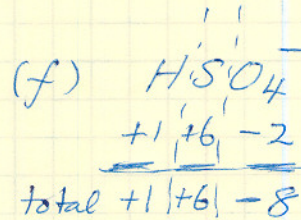 (f) HSO₄⁻
+1 |+6| -2
total +1 |+6| -8